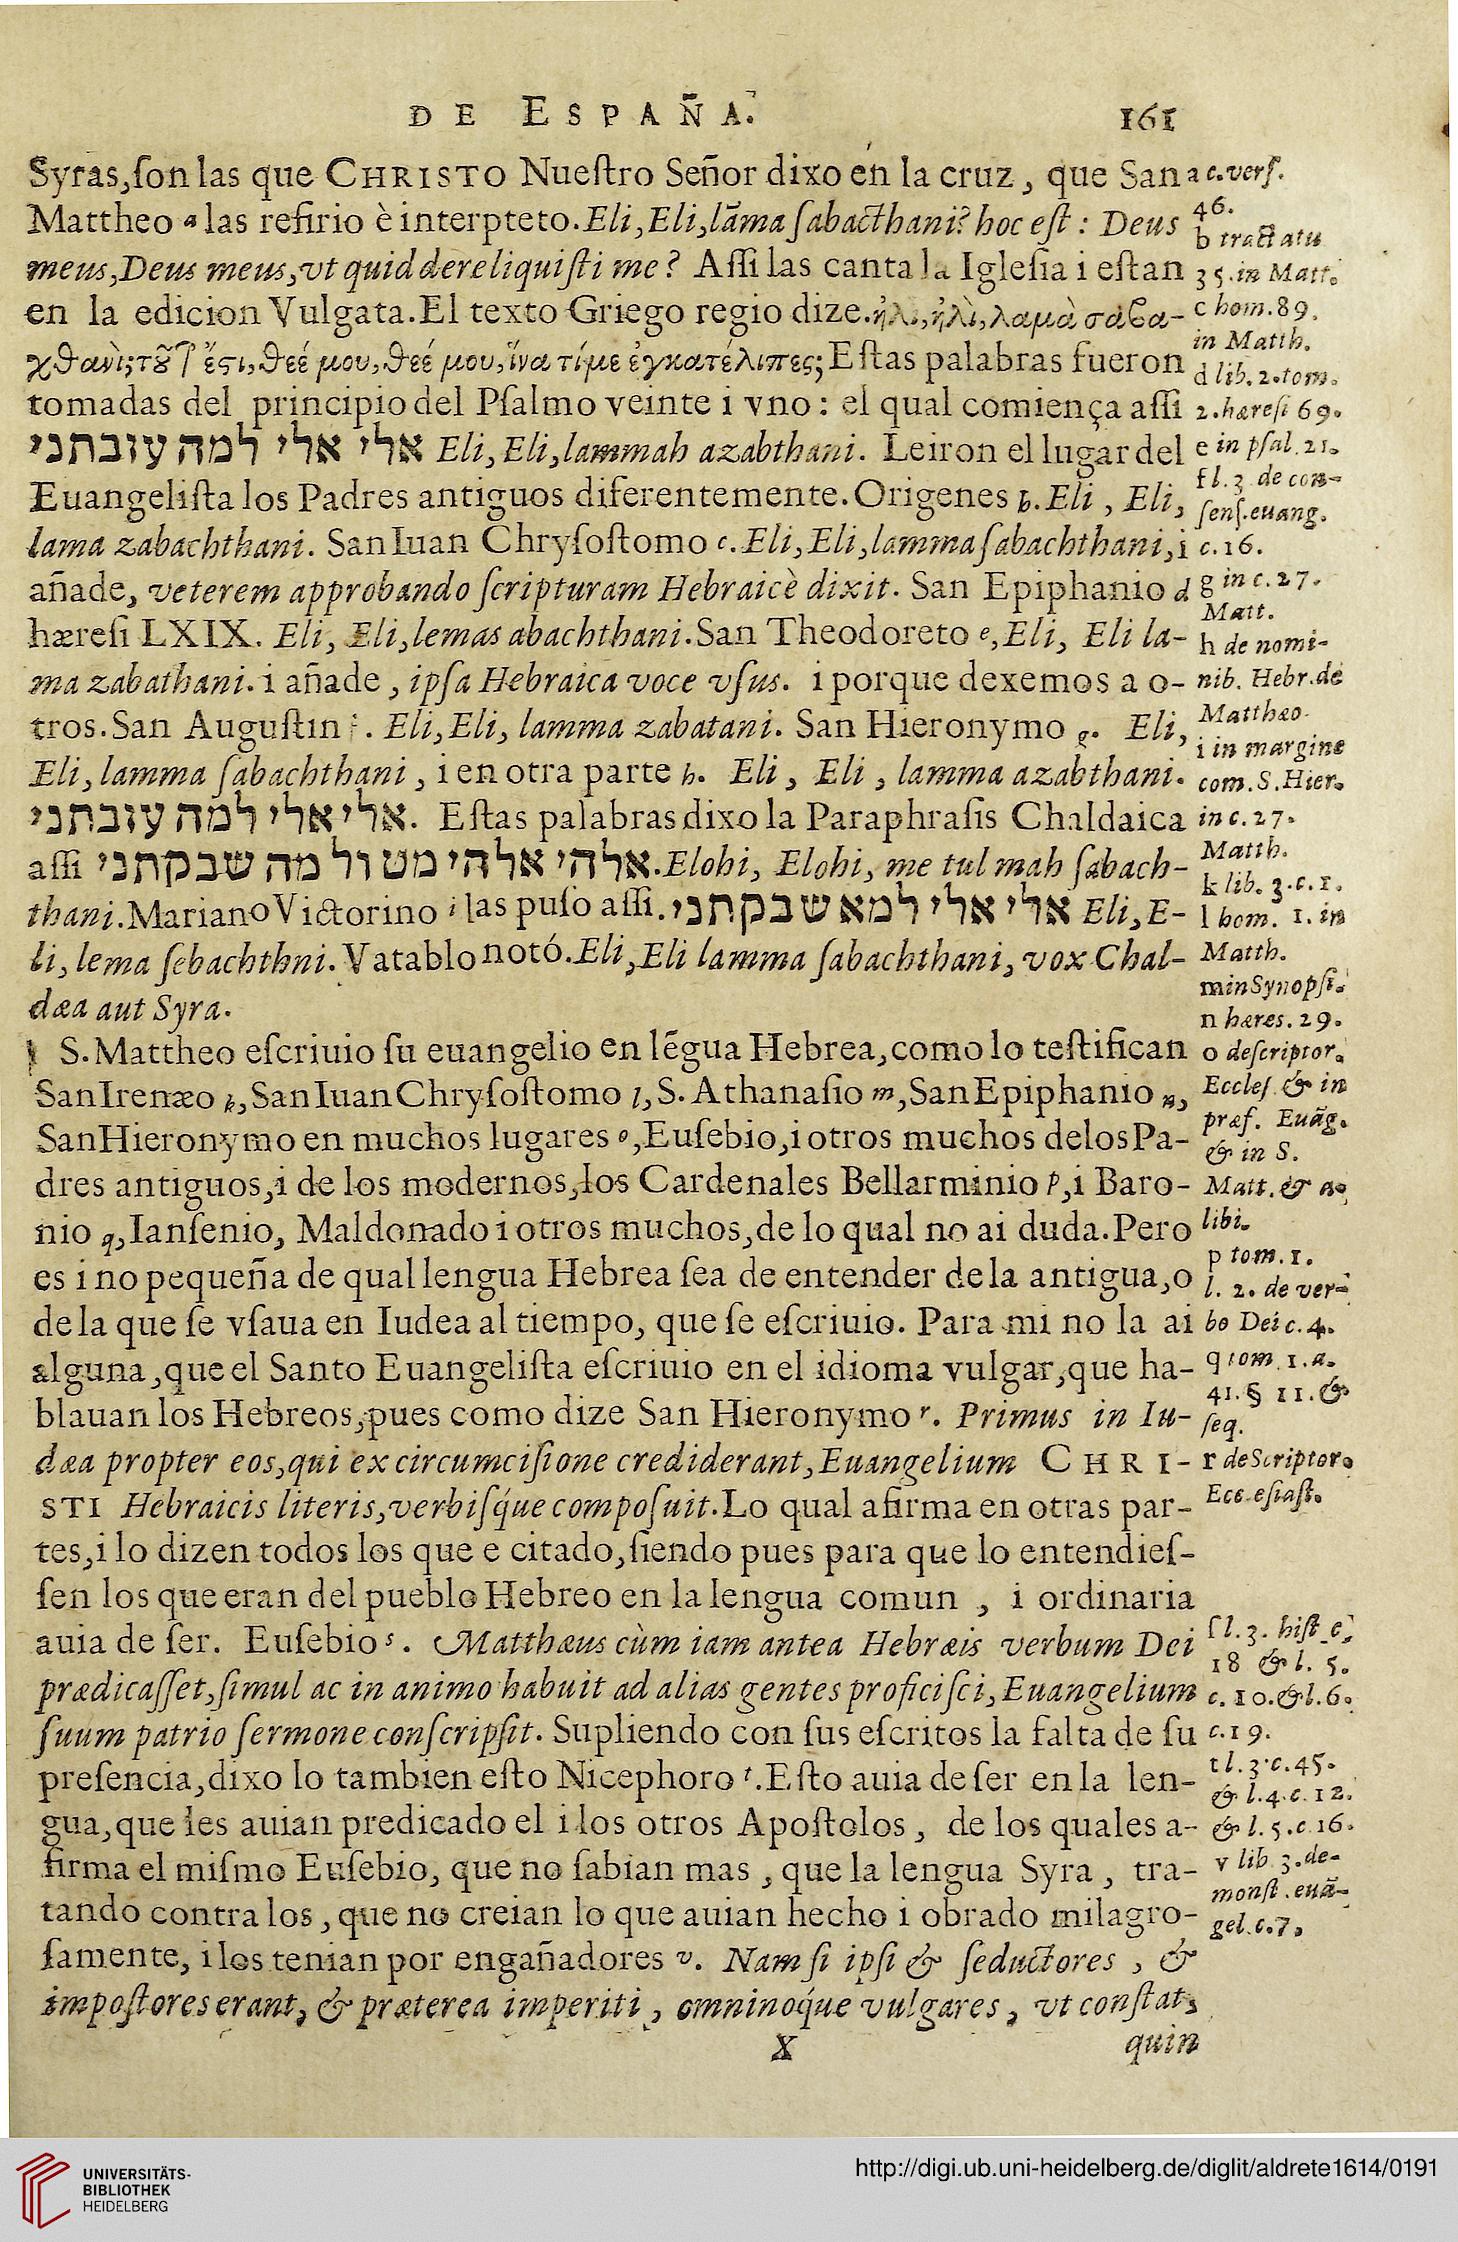 DE ESPAÑA. 161
Syras,ſon las que CHRISTO Nueſtro Señor dixo en la cruz, que San
Mattheo a las refirio è interpteto.Eli,Eli,lãma ſabacthani? hoc eſt: Deus
meus,Deus meus,vt quid dereliquiſti me? Aſſi las canta la Igleſia i eſtan
en la edicion Vulgata.El texto Griego regio dize.ἠλὶ,ἠλὶ,λαμὰ σαϐα-
χθανὶ;τȣ͂τ ἔϛι,θεέ μου,θεέ μου,ἵνα τί με ἐγκατέλιπες; Eſtas palabras fueron
tomadas del principio del Pſalmo veinte i vno: el qual comiença aſſi
אלי אלי למה עזבתני Eli, Eli,lammah azabthani. Leiron el lugar del
Euangeliſta los Padres antiguos diferentemente.Origenes b.Eli, Eli,
lama zabachthani. San Iuan Chryſoſtomo c.Eli,Eli,lamma ſabachthani,i
añade, veterem approbando ſcripturam Hebraicè dixit. San Epiphanio d
hæreſi LXIX. Eli, Eli,lemas abachthani.San Theodoreto e,Eli, Eli la-
ma zabathani. i añade, ipſa Hebraica voce vſus. i porque dexemos a o-
tros.San Auguſtin f. Eli,Eli, lamma zabatani. San Hieronymo g. Eli,
Eli, lamma ſabachthani, i en otra parte h. Eli, Eli, lamma azabthani.
אלי אלי למה עזבתני. Eſtas palabras dixo la Paraphraſis Chaldaica
aſſi אלהי אלהי מטול מה שבקתני.Elohi, Elohi, me tul mah ſabach-
thani.Mariano Victorino i las puſo aſſi.אלי אלי למא שבקתני Eli,E-
li, lema ſebachthni. Vatablo notó.Eli,Eli lamma ſabachthani, vox Chal-
dæa aut Syra.
S.Mattheo eſcriuio ſu euangelio en lẽgua Hebrea,como lo teſtifican
San Irenæo k,San Iuan Chryſoſtomo l,S.Athanaſio m,San Epiphanio n,
San Hieronymo en muchos lugares o,Euſebio,i otros muchos de los Pa-
dres antiguos,i de los modernos,los Cardenales Bellarminio p,i Baro-
nio q,Ianſenio, Maldonado i otros muchos,de lo qual no ai duda.Pero
es i no pequeña de qual lengua Hebrea ſea de entender de la antigua,o
de la que ſe vſaua en Iudea al tiempo, que ſe eſcriuio. Para mi no la ai
alguna,que el Santo Euangeliſta eſcriuio en el idioma vulgar,que ha-
blauan los Hebreos,pues como dize San Hieronymo r. Primus in Iu-
dæa propter eos,qui ex circumciſione crediderant,Euangelium CHRI-
STI Hebraicis literis,verbiſq́ue compoſuit.Lo qual afirma en otras par-
tes,i lo dizen todos los que e citado,ſiendo pues para que lo entendieſ-
ſen los que eran del pueblo Hebreo en la lengua comun, i ordinaria
auia de ſer. Euſebio s. Matthæus cùm iam antea Hebræis verbum Dei
prædicaſſet,ſimul ac in animo habuit ad alias gentes proficiſci,Euangelium
ſuum patrio ſermone conſcripſit. Supliendo con ſus eſcritos la falta de ſu
preſencia,dixo lo tambien eſto Nicephoro t.Eſto auia de ſer en la len-
gua,que les auian predicado el i los otros Apoſtolos, de los quales a-
firma el miſmo Euſebio, que no ſabian mas, que la lengua Syra, tra-
tando contra los, que no creian lo que auian hecho i obrado milagro-
ſamente, i los tenian por engañadores v. Nam ſi ipſi & ſeductores, &
impoſtores erant, & præterea imperiti, omninoq́ue vulgares, vt conſtat,
X quin
a c.verſ.
46.
b tractatu
35.in Matt.
c hom.89.
in Matth.
d lib.2.tom.
2.hæreſi 69.
e in pſal.21.
f l.3 de con-
ſenſ.euang.
c.16.
g in c.27.
Matt.
h de nomi-
nib. Hebr.de
Matthæo.
i in margine
com.S.Hier.
in c.27.
Matth.
k lib.3.c.1.
l hom. 1. in
Matth.
m in Synopſi.
n hæres.29.
o deſcriptor.
Eccleſ. & in
præf. Euãg.
& in S.
Matt. & a-
libi.
p tom.1.
l. 2. de ver-
bo Dei c.4.
q tom.1.a.
41.§ 11.&
ſeq.
r de Scriptor.
Eccleſiaſt.
ſ l.3. hiſt.e.
18 & l. 5.
c.10.& l.6.
c.19.
t l.3.c.45.
& l.4.c.12.
& l.5.c.16.
v lib 3.de-
monſt.euã-
gel.c.7.
UNIVERSITÄTS-
BIBLIOTHEK
HEIDELBERG
http://digi.ub.uni-heidelberg.de/diglit/aldrete1614/0191